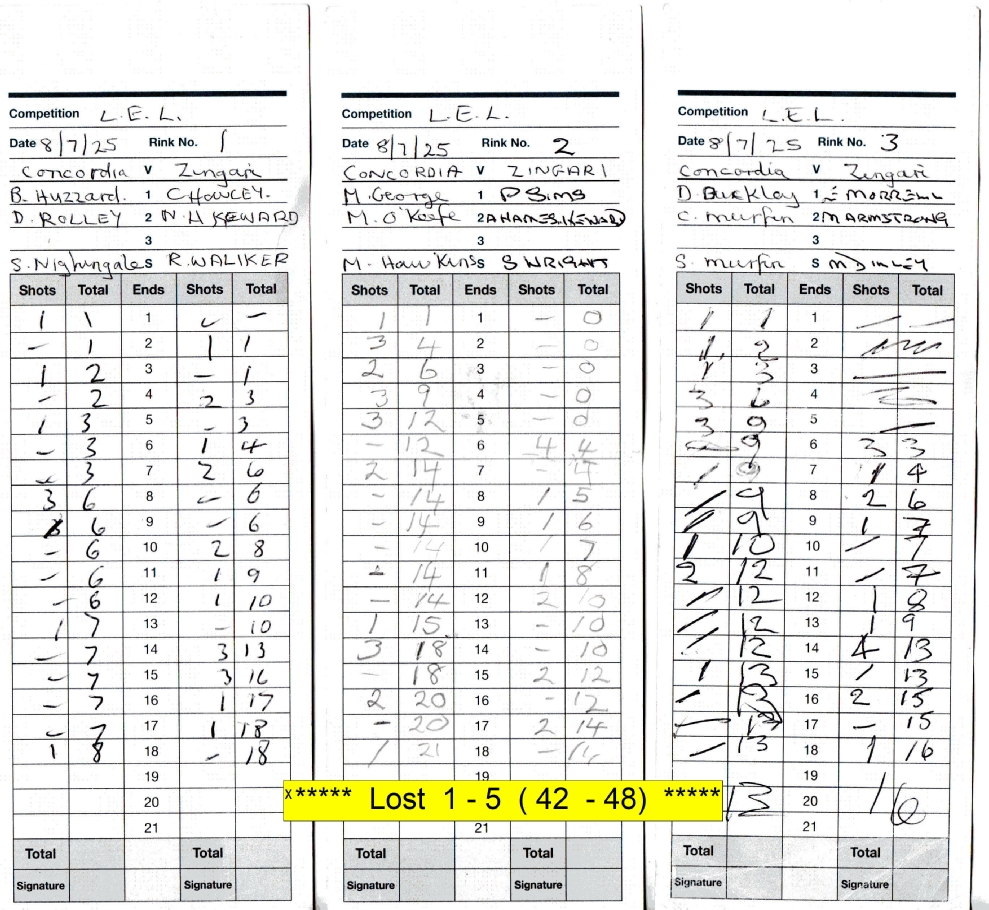 Competition L.E.L.
Date 8/7/25 Rink No. 1
Concordia V Zingari
B. Huzzard. 1 C HOWLEY.
D. ROLLEY 2 N. H KEWARD
3
S. Nightingale S R. WALIKER
Shots Total Ends Shots Total
1 1 1 - -
- 1 2 1 1
1 2 3 - 1
- 2 4 2 3
1 3 5 - 3
- 3 6 1 4
- 3 7 2 6
3 6 8 - 6
6 9 - 6
- 6 10 2 8
- 6 11 1 9
- 6 12 1 10
1 7 13 - 10
- 7 14 3 13
- 7 15 3 16
- 7 16 1 17
- 7 17 1 18
1 8 18 - 18
19
20
21
Total Total
Signature Signature
Competition L.E.L.
Date 8/7/25 Rink No. 2
CONCORDIA V ZINGARI
M. George 1 P SIMS
M. O'Keefe 2
3
M. Hawkins S S WRIGHT
Shots Total Ends Shots Total
1 1 1 - 0
3 4 2 - 0
2 6 3 - 0
3 9 4 - 0
3 12 5 - 0
- 12 6 4 4
2 14 7 - 4
- 14 8 1 5
- 14 9 1 6
- 14 10 1 7
- 14 11 1 8
- 14 12 2 10
1 15 13 - 10
3 18 14 - 10
- 18 15 2 12
2 20 16 - 12
- 20 17 2 14
1 21 18 - 14
19
21
Total Total
Signature Signature
Competition L.E.L.
Date 8/7/25 Rink No. 3
Concordia V Zingari
D. Buckley 1 E MORRELL
C. Murfin 2 M ARMSTRONG
3
S. Murfin S
Shots Total Ends Shots Total
/ 1 1 - -
1 2 2
1 3 3 -
3 6 4
3 9 5 -
- 9 6 3 3
/ 9 7 1 4
/ 9 8 2 6
/ 9 9 1 7
1 10 10 / 7
2 12 11 / 7
/ 12 12 1 8
/ 12 13 1 9
/ 12 14 4 13
1 13 15 / 13
/ 13 16 2 15
- 13 17 - 15
- 13 18 1 16
19
13 20 16
21
Total Total
Signature Signature
x***** Lost 1 - 5 ( 42 - 48) *****